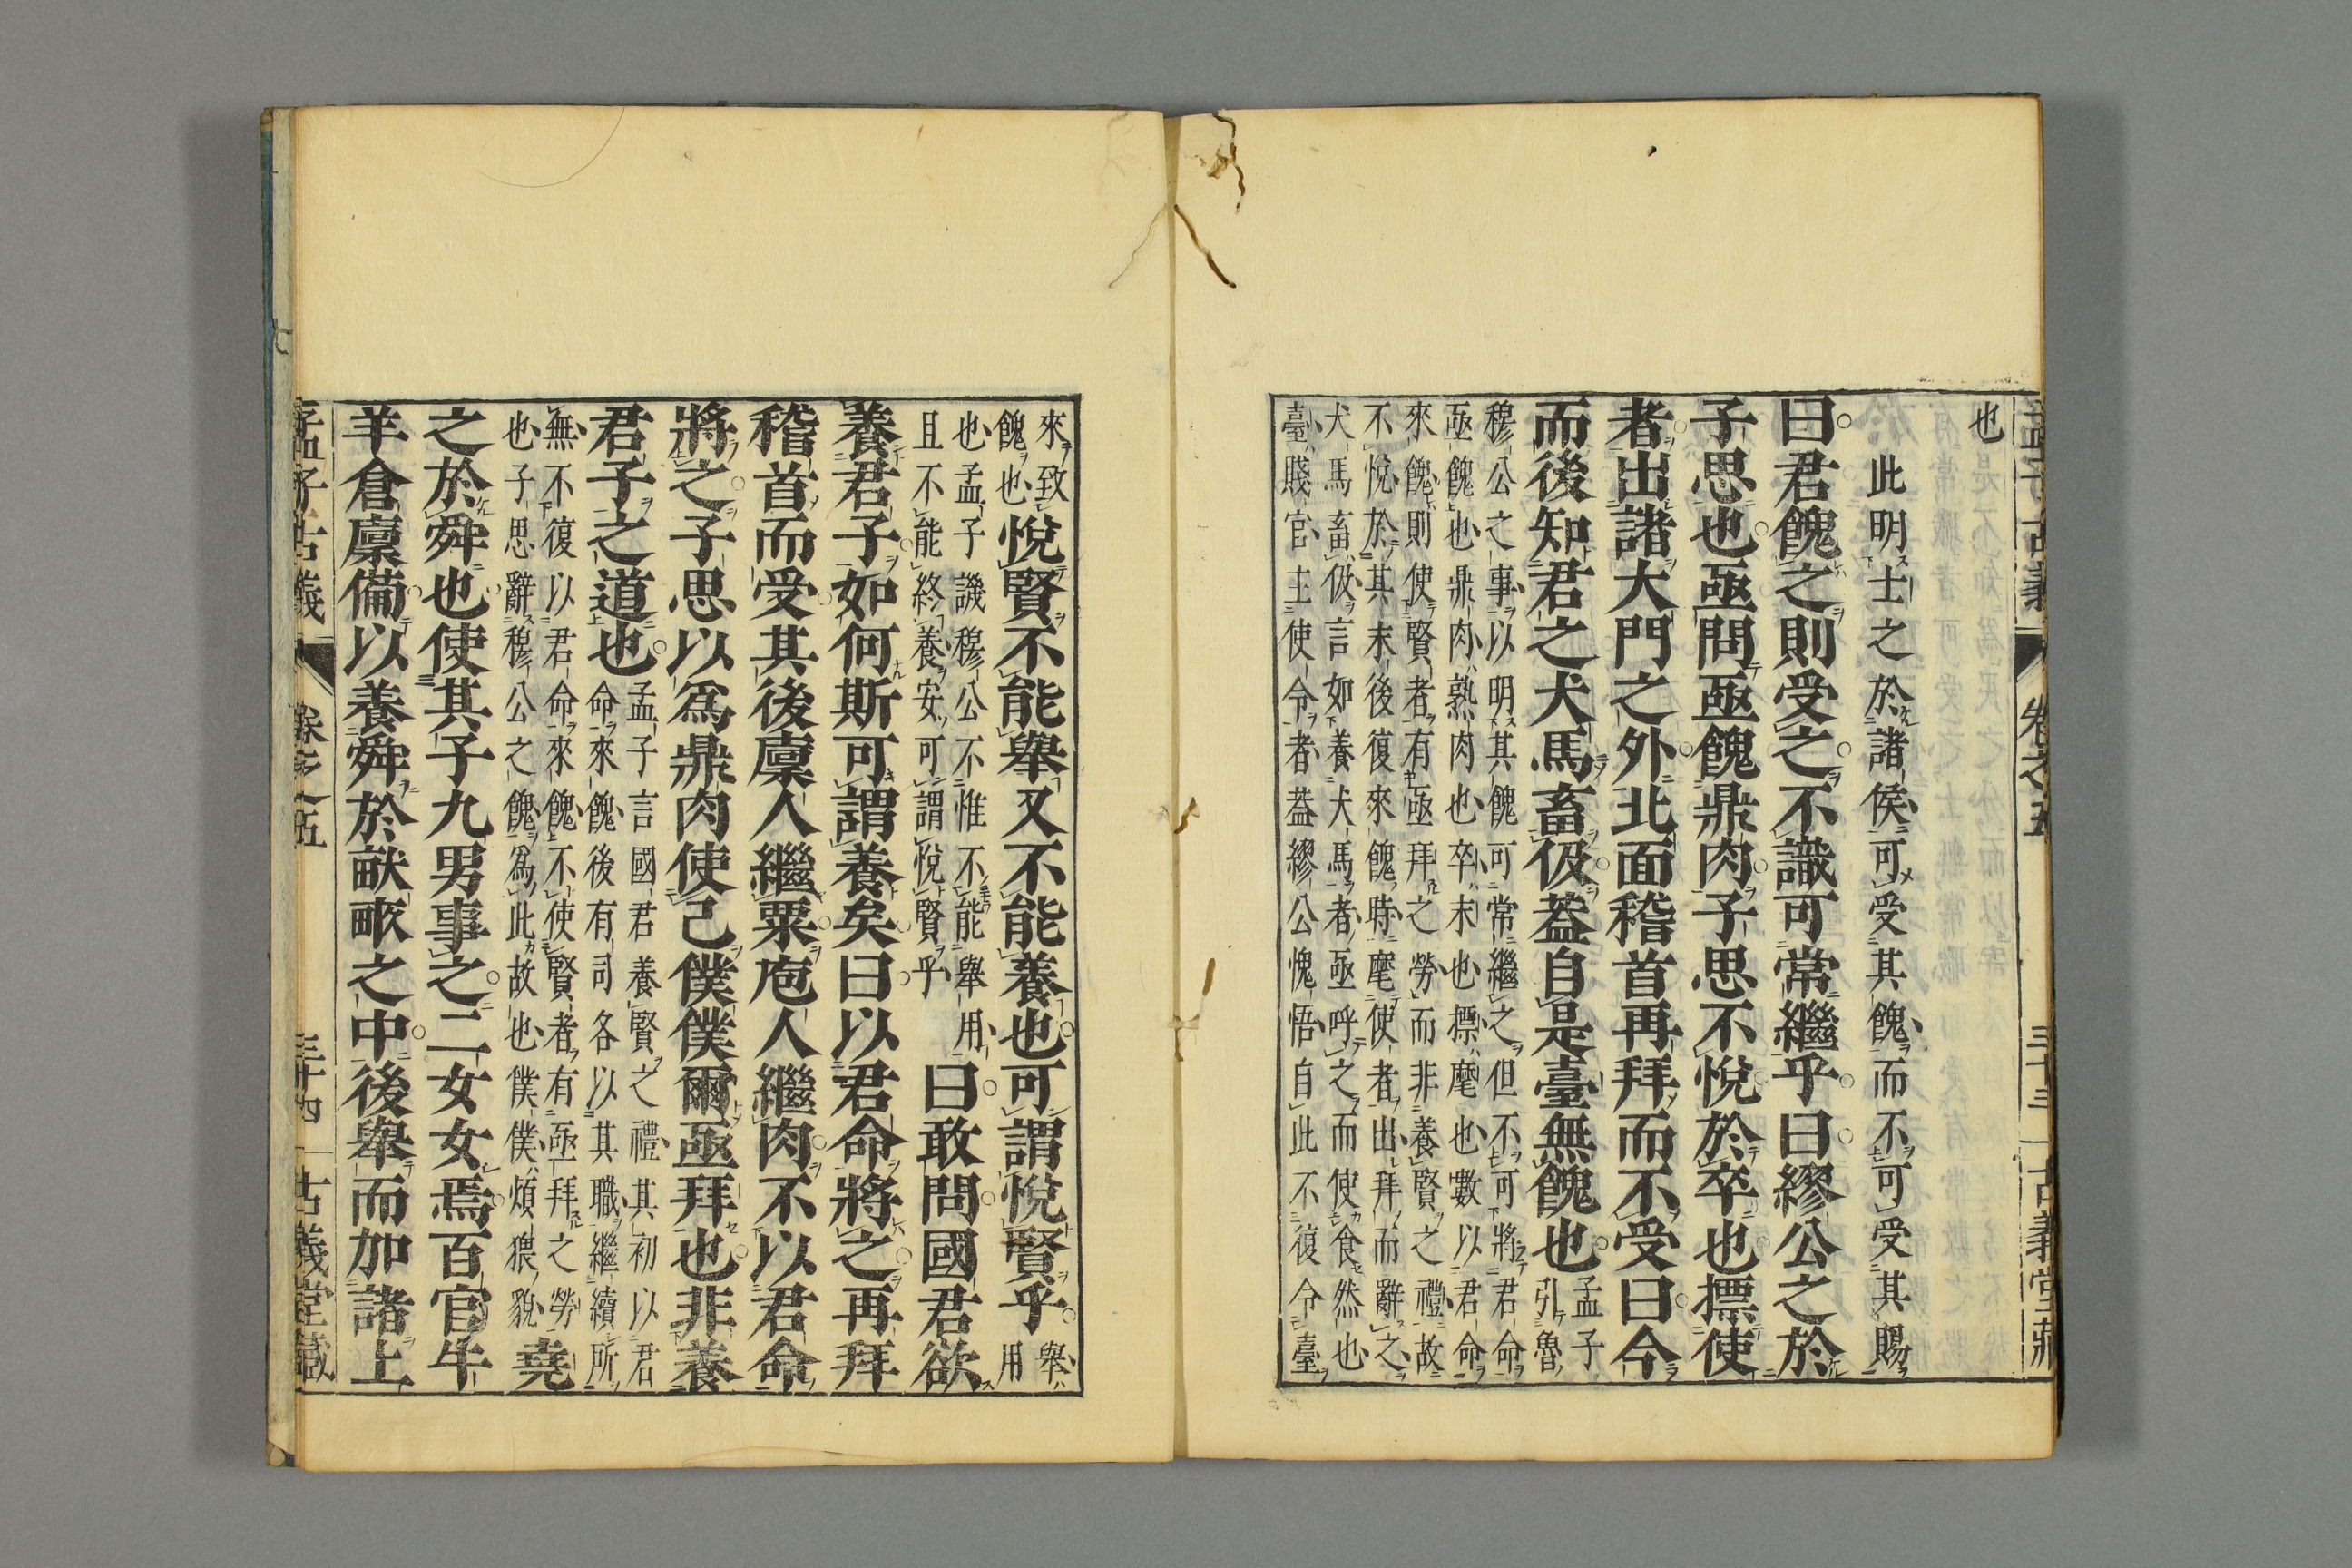 孟子古義 卷之五 三十三 古義堂藏
也
此明士之於諸侯可受其餽而不可受其賜
曰君餽之則受之不識可常繼乎曰繆公之於
子思也亟問亟餽鼎肉子思不悅於卒也摽使
者出諸大門之外北面稽首再拜而不受曰今
而後知君之犬馬畜伋葢自是臺無餽也孟子
引魯
穆公之事以明其餽可常繼之但不可將君命
亟餽也鼎肉熟肉也卒末也摽麾也數以君命
來餽則使賢者有亟拜之勞而非養賢之禮故
不悅於其末後復來餽時麾使者出拜而辭之
犬馬畜伋言如養犬馬者亟呼之而使食然也
臺賤官主使令者葢繆公愧悟自此不復令臺
來致
餽也悅賢不能舉又不能養也可謂悅賢乎舉
用
也孟子譏穆公不惟不能舉用
且不能終養安可謂悅賢乎曰敢問國君欲
養君子如何斯可謂養矣曰以君命將之再拜
稽首而受其後廩人繼粟庖人繼肉不以君命
將之子思以爲鼎肉使己僕僕爾亟拜也非養
君子之道也孟子言國君養賢之禮其初以君
命來餽後有司各以其職繼續所
無不復以君命來餽不使賢者有亟拜之勞
也子思辭穆公之餽爲此故也僕僕煩猥貌堯
之於舜也使其子九男事之二女女焉百官牛
羊倉廩備以養舜於畎畝之中後舉而加諸上
孟子古義 卷之五 三十四 古義堂藏